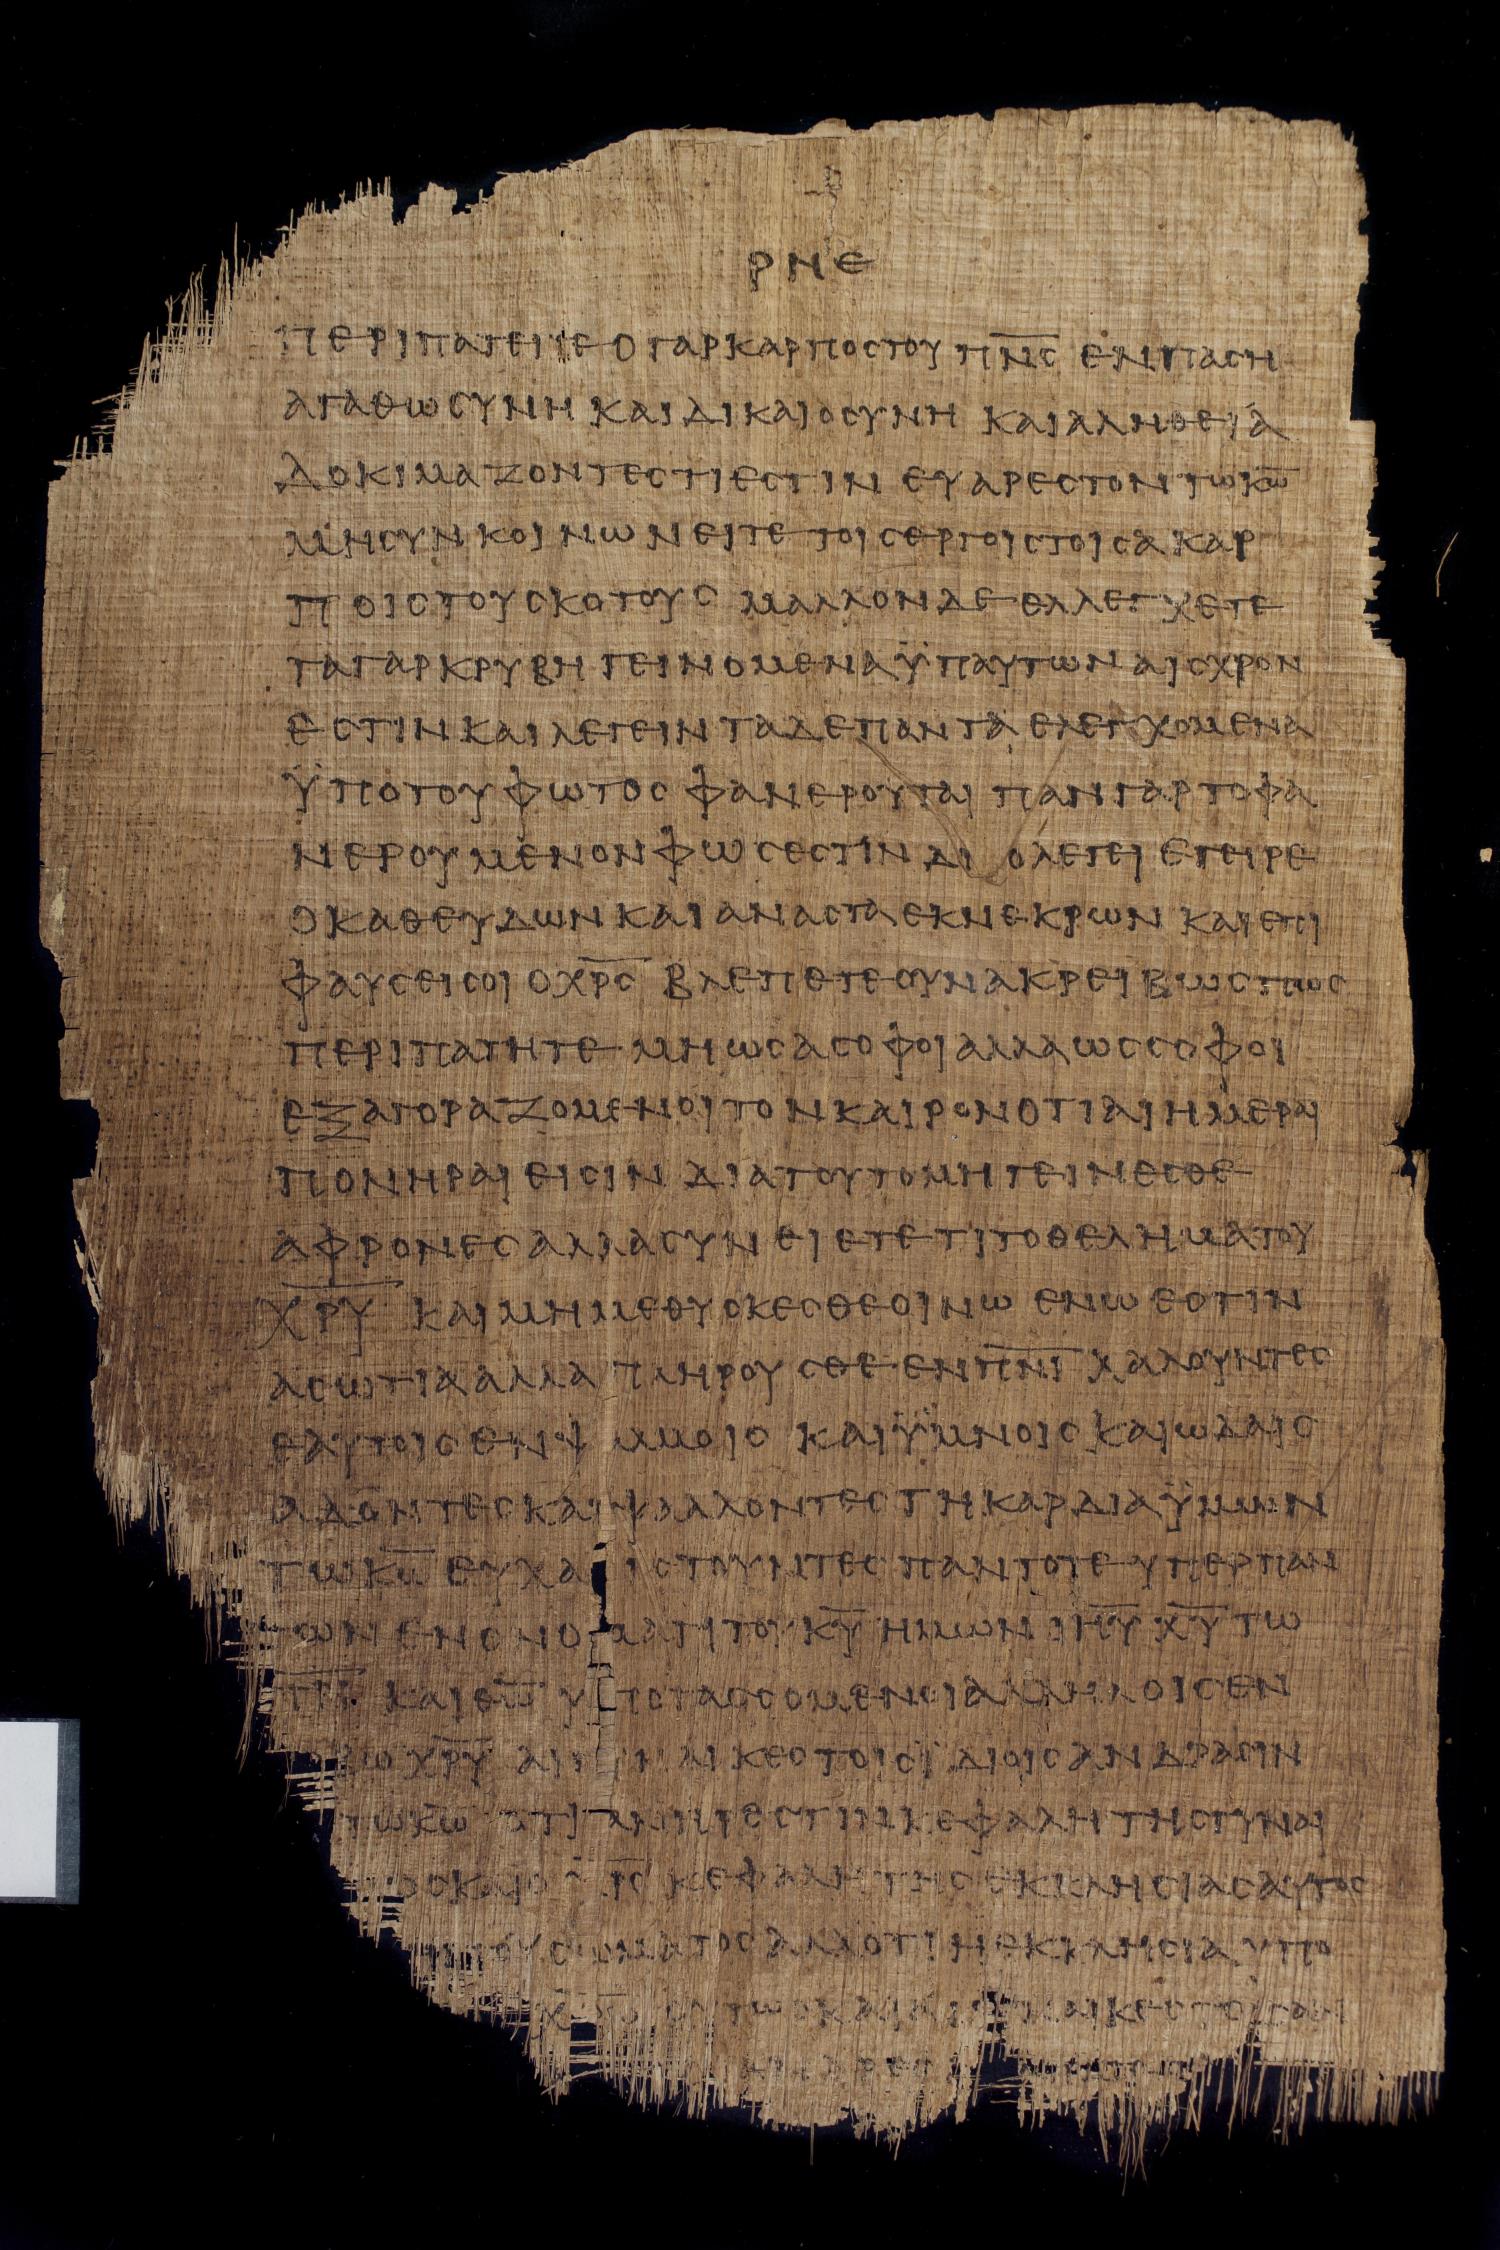 ΡΝΕ
ΠΕΡΙΠΑΤΕΙΤΕ Ο ΓΑΡ ΚΑΡΠΟΣ ΤΟΥ Π̅Ν̅Σ̅ ΕΝ ΠΑΣΗ
ΑΓΑΘΩΣΥΝΗ ΚΑΙ ΔΙΚΑΙΟΣΥΝΗ ΚΑΙ ΑΛΗΘΕΙΑ
ΔΟΚΙΜΑΖΟΝΤΕΣ ΤΙ ΕΣΤΙΝ ΕΥΑΡΕΣΤΟΝ ΤΩ Κ̅Ω̅
ΜΗ ΣΥΝΚΟΙΝΩΝΕΙΤΕ ΤΟΙΣ ΕΡΓΟΙΣ ΤΟΙΣ ΑΚΑΡ
ΠΟΙΣ ΤΟΥ ΣΚΟΤΟΥΣ ΜΑΛΛΟΝ ΔΕ ΕΛΛΕΓΧΕΤΕ
ΤΑ ΓΑΡ ΚΡΥΒΗ ΓΕΙΝΟΜΕΝΑ ΫΠ ΑΥΤΩΝ ΑΙΣΧΡΟΝ
ΕΣΤΙΝ ΚΑΙ ΛΕΓΕΙΝ ΤΑ ΔΕ ΠΑΝΤΑ ΕΛΕΓΧΟΜΕΝΑ
ΫΠΟ ΤΟΥ ΦΩΤΟΣ ΦΑΝΕΡΟΥΤΑΙ ΠΑΝ ΓΑΡ ΤΟ ΦΑ
ΝΕΡΟΥΜΕΝΟΝ ΦΩΣ ΕΣΤΙΝ ΔΙΟ ΛΕΓΕΙ ΕΓΕΙΡΕ
Ο ΚΑΘΕΥΔΩΝ ΚΑΙ ΑΝΑΣΤΑ ΕΚ ΝΕΚΡΩΝ ΚΑΙ ΕΠΙ
ΦΑΥΣΕΙ ΣΟΙ Ο Χ̅Ρ̅Σ̅ ΒΛΕΠΕΤΕ ΟΥΝ ΑΚΡΕΙΒΩΣ ΠΩΣ
ΠΕΡΙΠΑΤΗΤΕ ΜΗ ΩΣ ΑΣΟΦΟΙ ΑΛΛΑ ΩΣ ΣΟΦΟΙ
ΕΞΑΓΟΡΑΖΟΜΕΝΟΙ ΤΟΝ ΚΑΙΡΟΝ ΟΤΙ ΑΙ ΗΜΕΡΑΙ
ΠΟΝΗΡΑΙ ΕΙΣΙΝ ΔΙΑ ΤΟΥΤΟ ΜΗ ΓΕΙΝΕΣΘΕ
ΑΦΡΟΝΕΣ ΑΛΛΑ ΣΥΝΕΙΕΤΕ ΤΙ ΤΟ ΘΕΛΗΜΑ ΤΟΥ
Χ̅Ρ̅Υ̅ ΚΑΙ ΜΗ ΜΕΘΥΣΚΕΣΘΕ ΟΙΝΩ ΕΝ Ω ΕΣΤΙΝ
ΑΣΩΤΙΑ ΑΛΛΑ ΠΛΗΡΟΥΣΘΕ ΕΝ Π̅Ν̅Ι̅ ΛΑΛΟΥΝΤΕΣ
ΕΑΥΤΟΙΣ ΕΝ Ψ ΜΜΟΙΣ ΚΑΙ ΫΜΝΟΙΣ ΚΑΙ ΩΔΑΙΣ
ΑΔΟΝΤΕΣ ΚΑΙ ΨΑΛΛΟΝΤΕΣ ΤΗ ΚΑΡΔΙΑ ΫΜΩΝ
ΤΩ Κ̅Ω̅ ΕΥΧΑ ΙΣΤΟΥΝΤΕΣ ΠΑΝΤΟΤΕ ΥΠΕΡ ΠΑΝ
ΤΩΝ ΕΝ ΟΝΟΜΑΤΙ ΤΟΥ Κ̅Υ̅ ΗΜΩΝ Ι̅Η̅Υ̅ Χ̅Υ̅ ΤΩ
Π̅Ρ̅Ι̅ ΚΑΙ Θ̅Ω̅ ΥΠΟΤΑΣΣΟΜΕΝΟΙ ΑΛΛΗΛΟΙΣ ΕΝ
ΒΩ Χ̅Ρ̅Υ̅ ΑΙ ΓΥΝΑΙΚΕΣ ΤΟΙΣ ΪΔΙΟΙΣ ΑΝΔΡΑΣΙΝ
ΤΩ Κ̅Ω̅ ΟΤΙ ΑΝΗΡ ΕΣΤΙΝ ΚΕΦΑΛΗ ΤΗΣ ΓΥΝΑΙ
ΟΣ ΚΑΙ Ο Χ̅Ρ̅Σ̅ ΚΕΦΑΛΗ ΤΗΣ ΕΚΚΛΗΣΙΑΣ ΑΥΤΟΣ
ΤΟΥ ΣΩΜΑΤΟΣ ΑΛΛ ΟΤΙ Η ΕΚΚΛΗΣΙΑ ΥΠΟ
ΟΥΤΩΣ ΚΑΙ ΑΙ ΓΥΝΑΙΚΕΣ ΤΟΙΣ ΑΝ